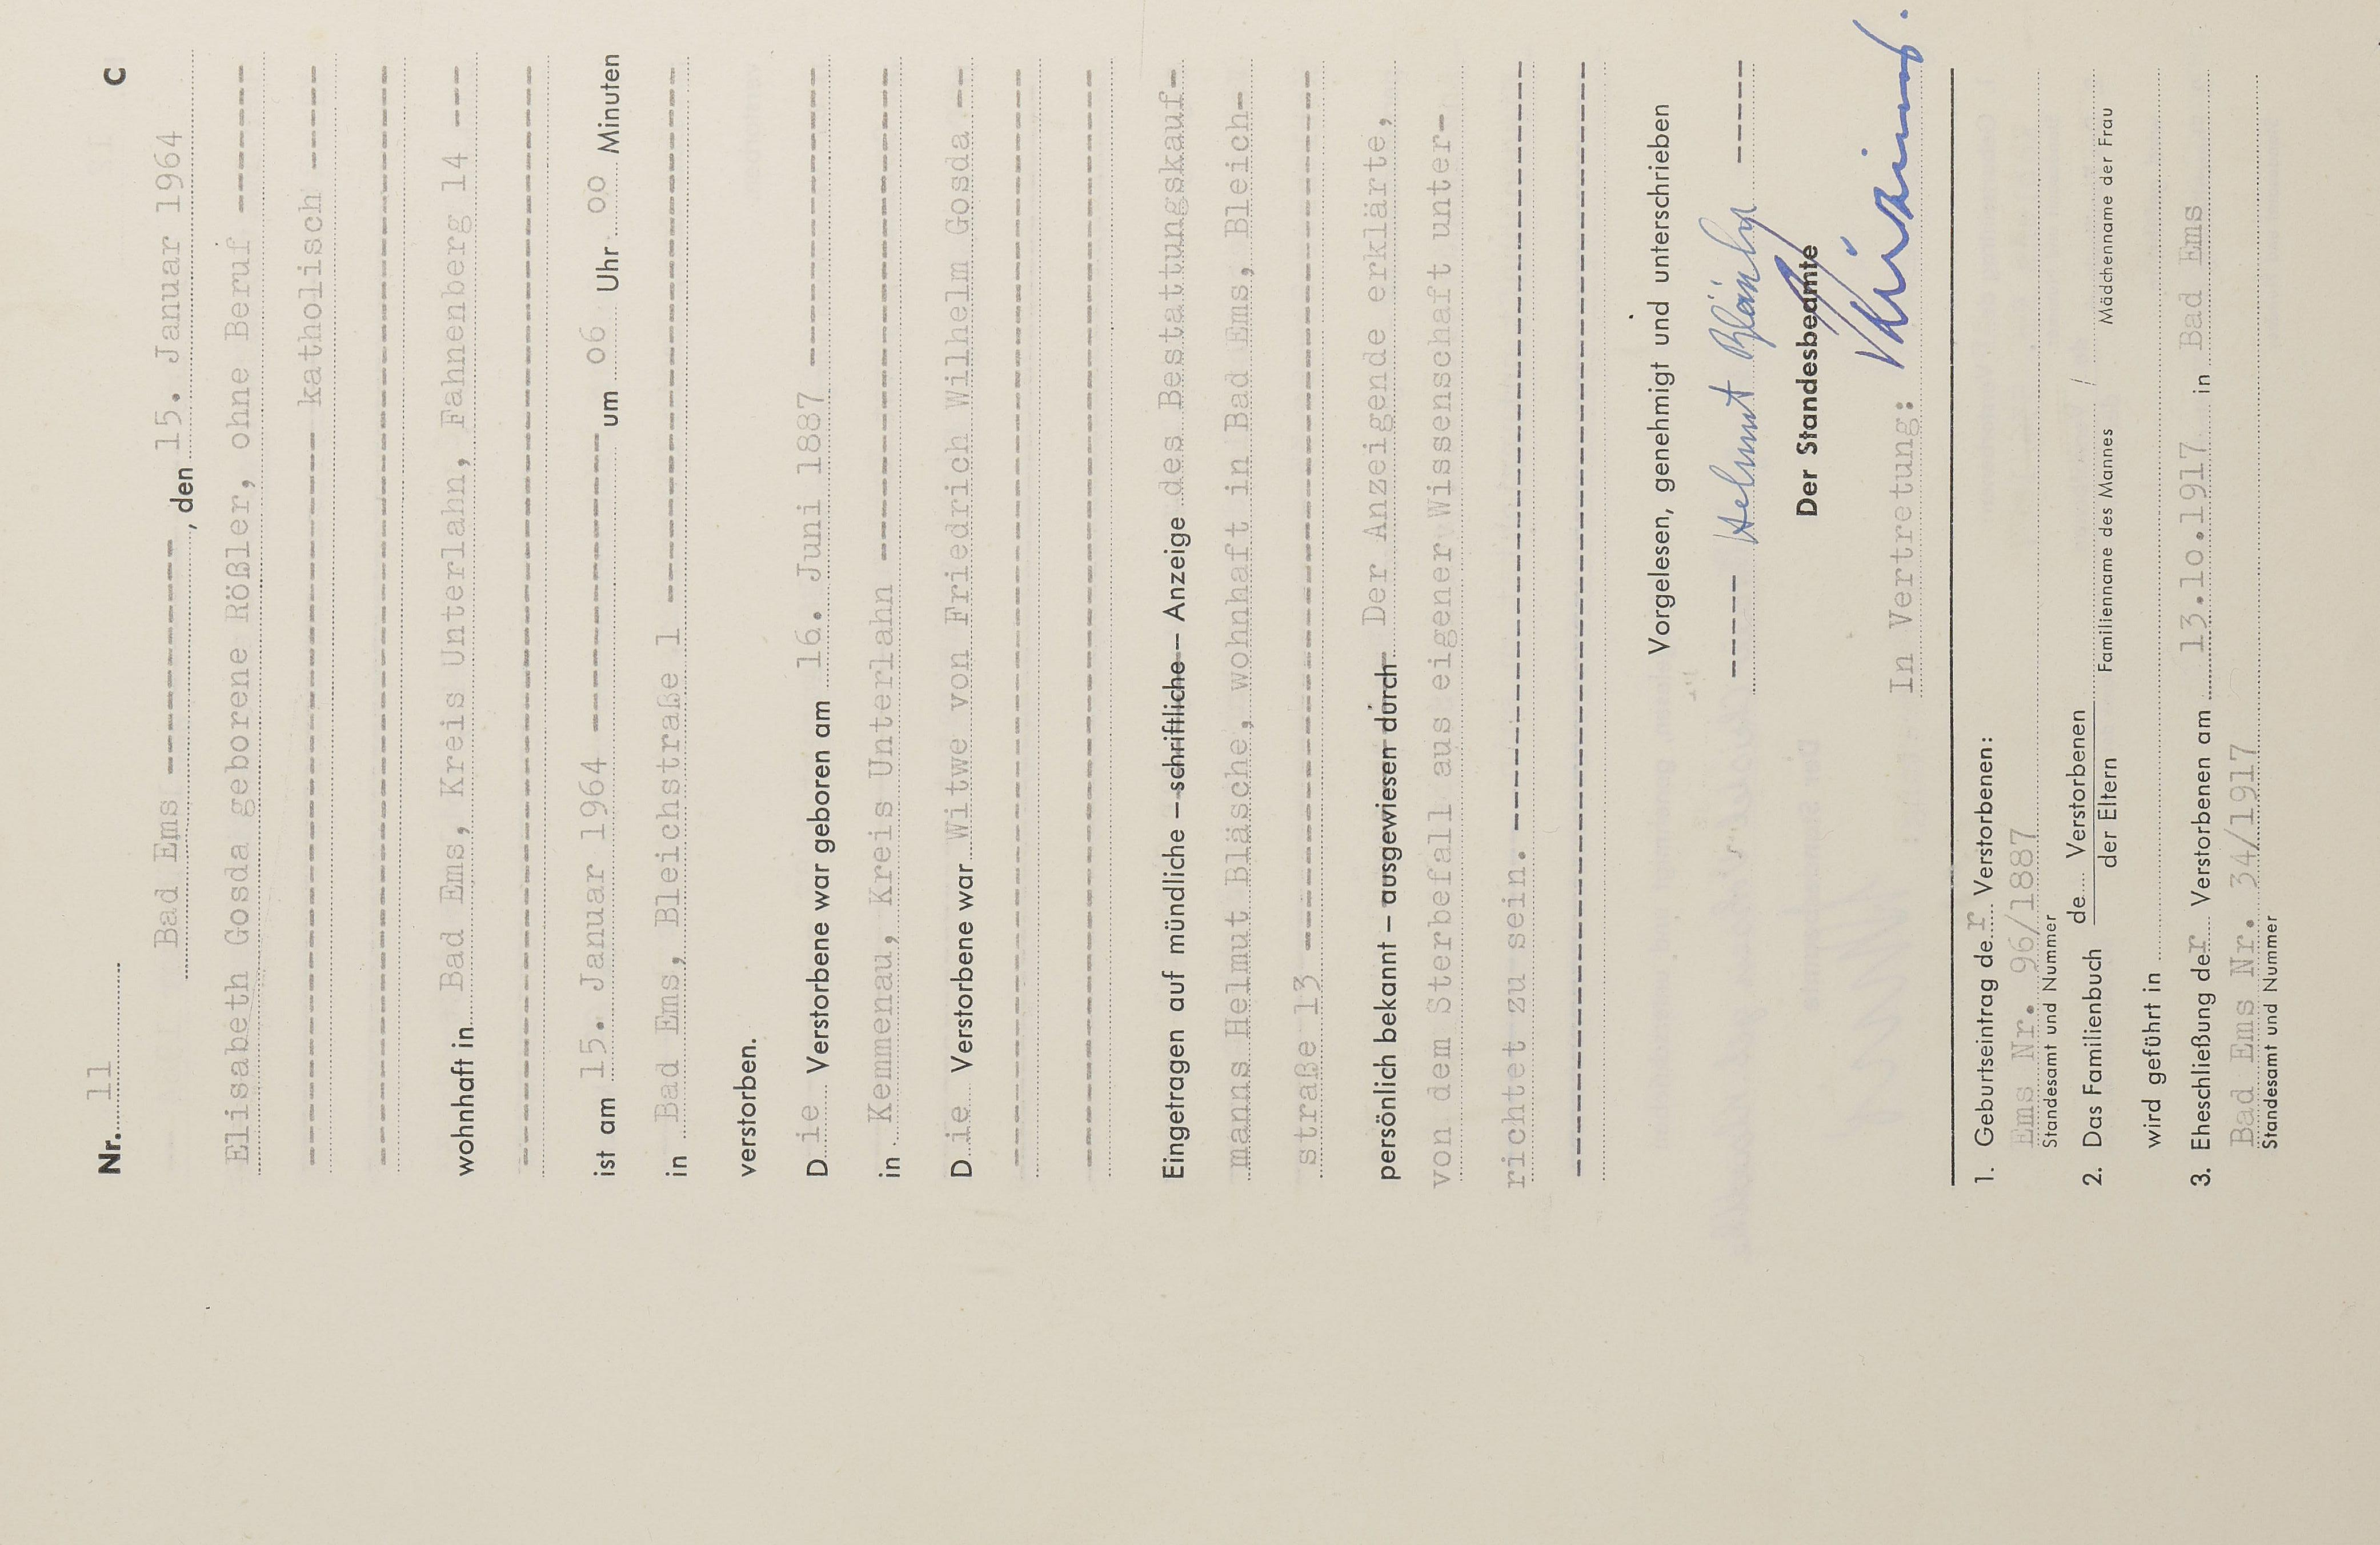 Nr. 11 C
Bad Ems ----------, den 15. Januar 1964
Elisabeth Gosda geborene Rößler, ohne Beruf ------
katholisch -----
wohnhaft in Bad Ems, Kreis Unterlahn, Fahnenberg 14 ---
ist am 15. Januar 1964 ------------- um 06 Uhr 00 Minuten
in Bad Ems, Bleichstraße 1 -----------------------
verstorben.
Die Verstorbene war geboren am 16. Juni 1887 -------------
in Kemmenau, Kreis Unterlahn ---------------------
Die Verstorbene war Witwe von Friedrich Wilhelm Gosda --
Eingetragen auf mündliche – schriftliche – Anzeige des Bestattungskauf-
manns Helmut Bläsche, wohnhaft in Bad Ems, Bleich-
straße 13 --------------------------------------
persönlich bekannt – ausgewiesen durch – Der Anzeigende erklärte,
von dem Sterbefall aus eigener Wissenschaft unter-
richtet zu sein. ---------------------------------
Vorgelesen, genehmigt und unterschrieben
----- Helmut Bläsche -----
Der Standesbeamte
In Vertretung:
1. Geburtseintrag der Verstorbenen:
Ems Nr. 96/1887
Standesamt und Nummer
2. Das Familienbuch de Verstorbenen /
der Eltern Familienname des Mannes Mädchenname der Frau
wird geführt in
3. Eheschließung der Verstorbenen am 13.10.1917 in Bad Ems
Bad Ems Nr. 34/1917
Standesamt und Nummer